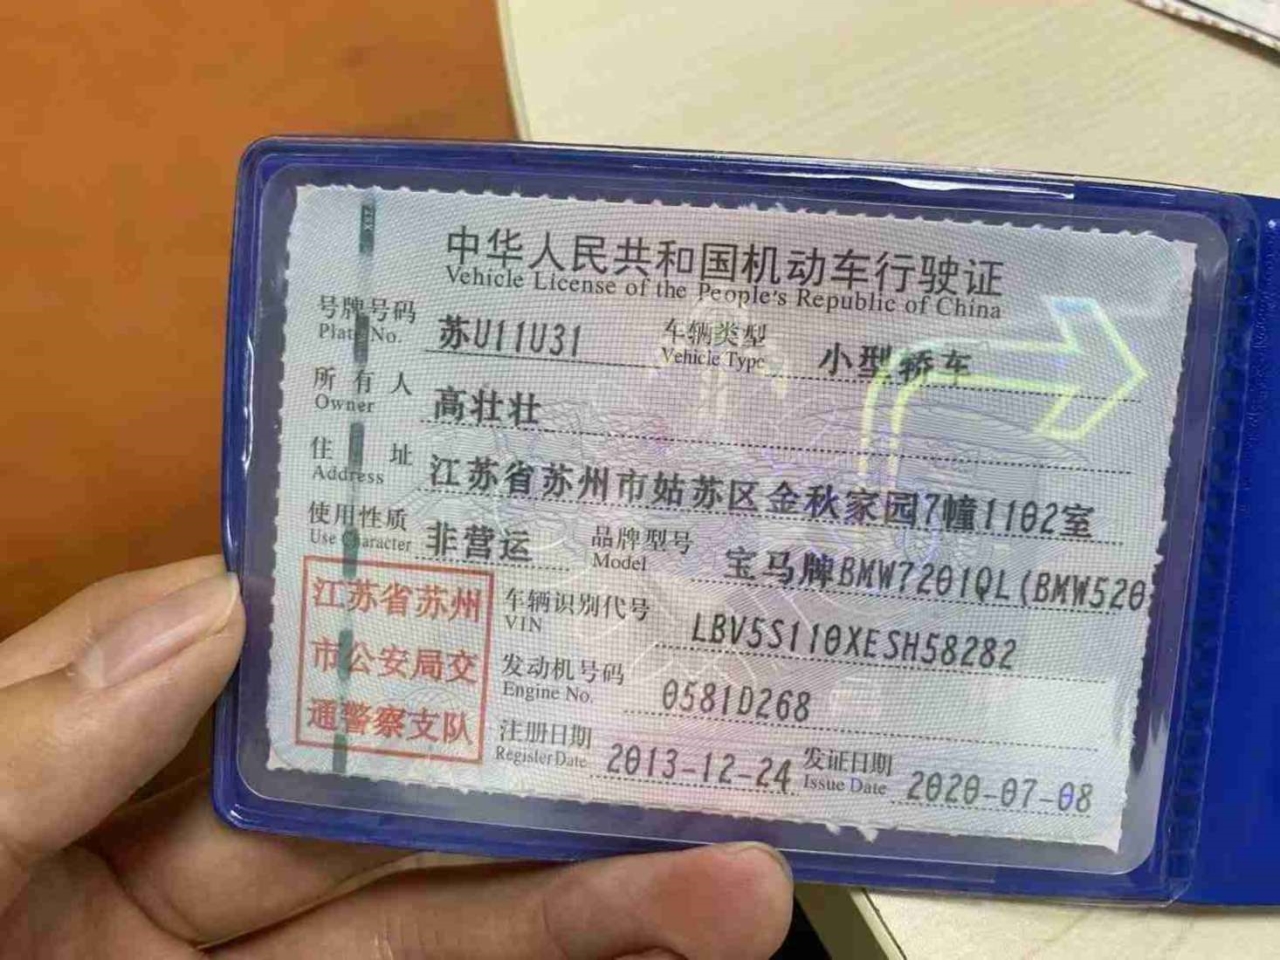 中华人民共和国机动车行驶证
Vehicle License of the People's Republic of China
号牌号码 苏U11U31 车辆类型 小型轿车
Plate No. Vehicle Type
所有人 高壮壮
Owner
住址 江苏省苏州市姑苏区金秋家园7幢1102室
Address
使用性质 非营运 品牌型号 宝马牌BMW7201QL(BMW520
Use Character Model
江苏省苏州
市公安局交
通警察支队
车辆识别代号 LBV5S110XESH58282
VIN
发动机号码 0581D268
Engine No.
注册日期 2013-12-24 发证日期 2020-07-08
Register Date Issue Date